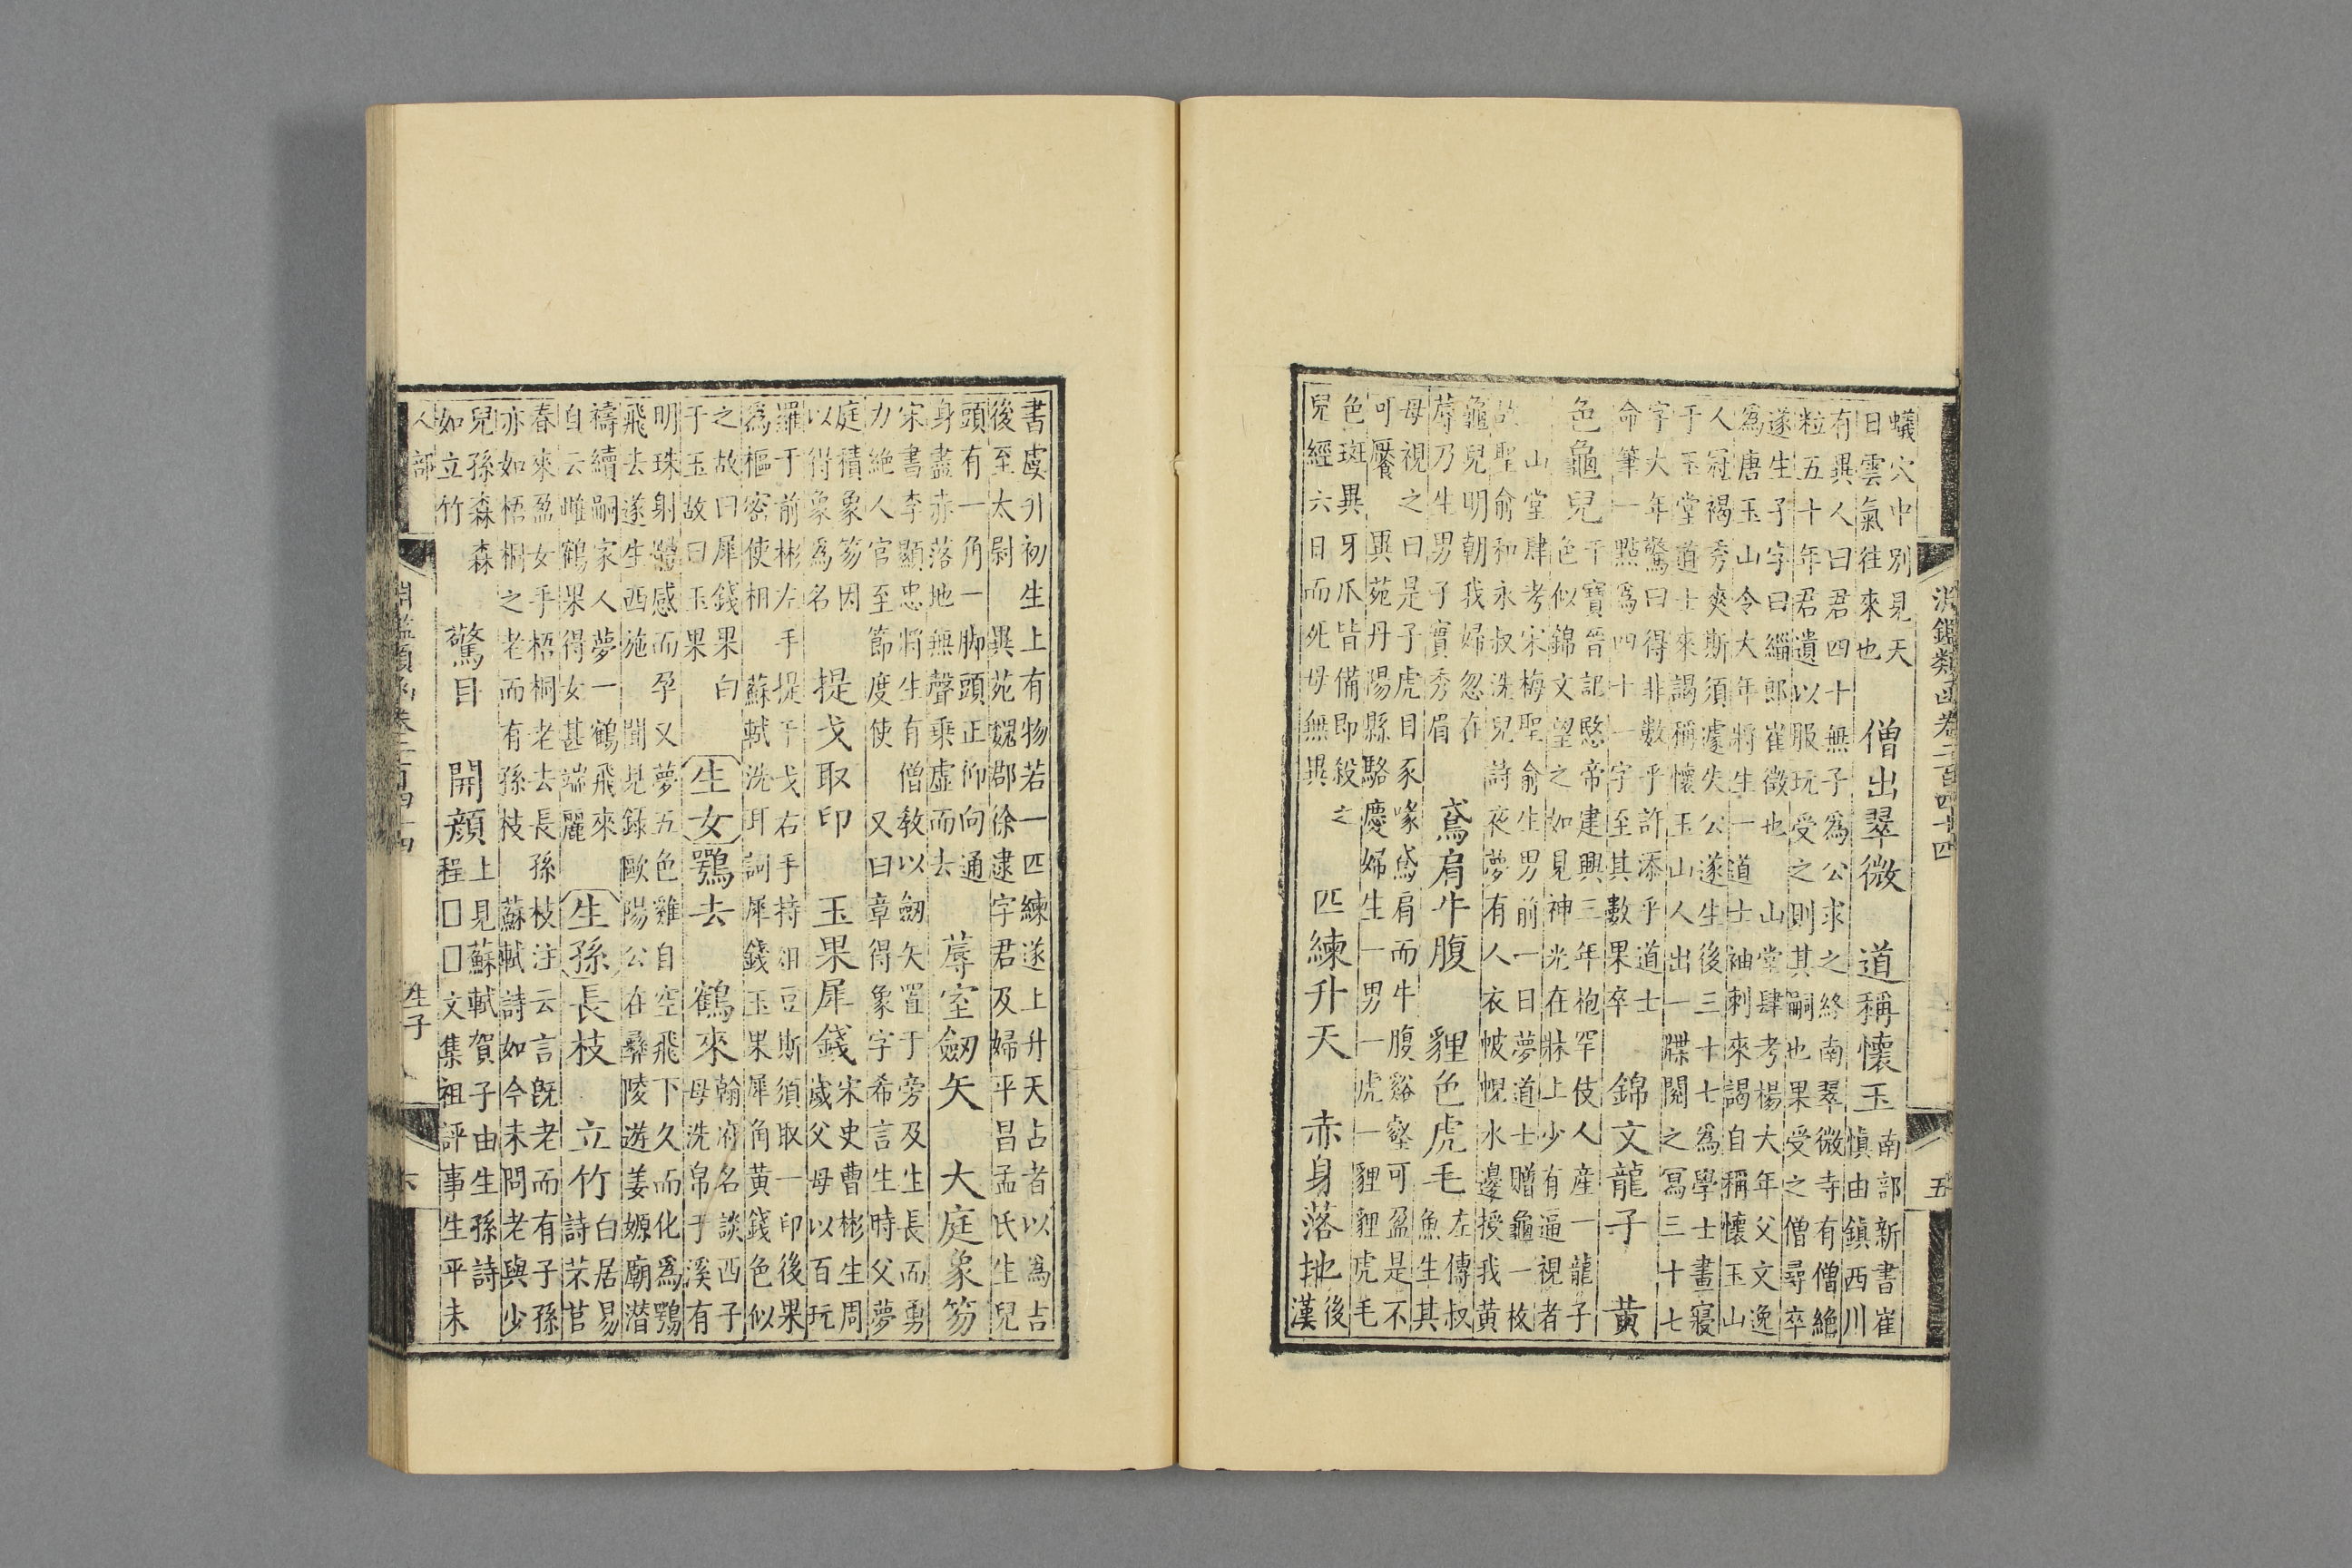 淵鑑類函卷二百四十四 五
蟻穴中別見天
日雲氣往來也
僧出翠微 道稱懷玉
南部新書崔
慎由鎮西川
有異人曰君四十無子為公求之終南翠微寺有僧絕
粒五十年君遺以服玩受之則其嗣也果受之僧尋卒
遂生子字曰緇郎崔徵也 山堂肆考楊大年父文逸
為唐玉山令大年將生一道士袖刺來謁自稱懷玉山
人冠褐秀爽斯須遽失公遂生後三十七為學士晝寢
于玉堂道士來謁稱懷玉山人出一牒閱之寫三十七
字大年驚曰得非數乎許添乎道士
命筆一點為四十一字至其數果卒
錦文龍子 黃
色龜兒
干寶晉記愍帝建興三年枹罕伎人産一龍子
色似錦文望之如見神光在牀上少有逼視者
山堂肆考宋梅聖俞生男前一日夢道士贈龜一枚
故聖俞和永叔洗兒詩夜夢有人衣帔幌水邊授我黃
龜兒明朝我婦忽在
蓐乃生男子實秀眉
鳶肩牛腹 貍色虎毛
左傳叔
魚生其
母視之曰是子虎目豕喙鳶肩而牛腹谿壑可盈是不
可饜 異苑丹陽縣駱慶婦生一男一虎一貍貍虎毛
色斑異牙爪皆備即殺之
兒經六日而死母無異
匹練升天 赤身落地
後
漢
書虞升初生上有物若一匹練遂上升天占者以為吉
後至太尉 異苑魏郡徐逮字君及婦平昌孟氏生兒
頭有一角一脚頭正仰向通
身盡赤落地無聲乘虛而去
蓐室劒矢 大庭象笏
宋書李顯忠將生有僧教以劒矢置于旁及生長而勇
力絶人官至節度使 又曰章得象字希言生時父夢
庭積象笏因
以得象為名
提戈取印 玉果犀錢
宋史曹彬生周
歲父母以百玩
羅于前彬左手提干戈右手持俎豆斯須取一印後果
為樞密使相 蘇軾洗耳詞犀錢玉果犀角黃錢色似
之故曰犀錢果白
于玉故曰玉果
生女 鶚去 鶴來
翰府名談西子
母洗帛于溪有
明珠射體感而孕又夢五色雞自空飛下久而化為鶚
飛去遂生西施 聞見錄歐陽公在彝陵遊姜嫄廟潛
禱續嗣家人夢一鶴飛來
自云雌鶴果得女甚端麗
生孫 長枝 立竹
白居易
詩茶苣
春來盈女手梧桐老去長孫枝注云言旣老而有子孫
亦如梧桐之老而有孫枝 蘇軾詩如今未問老與少
兒孫森森
如立竹
驚目 開顔
上見蘇軾賀子由生孫詩
程□□文集祖評事生平未
人部 淵鑑類函卷二百四十四 生子 六